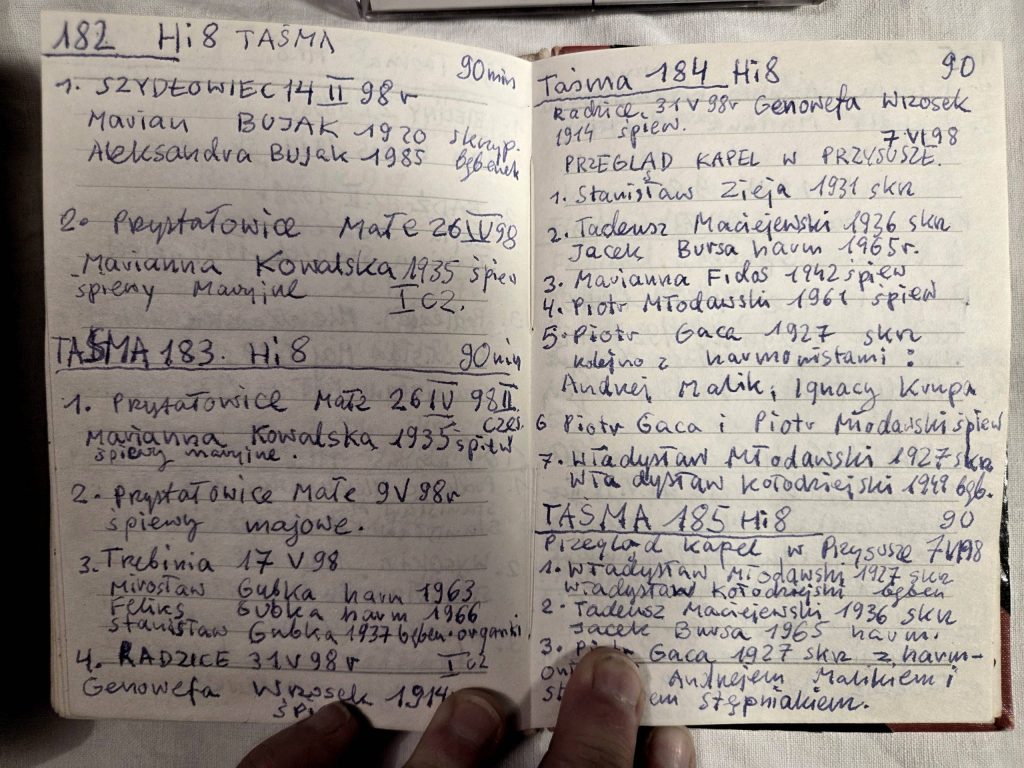 182 Hi8 TAŚMA
90 min
1. SZYDŁOWIEC 14 II 98 r
Marian BUJAK 1920 skrzyp.
Aleksandra Bujak 1985 bębenek
2. Przystałowice Małe 26 IV 98
Marianna Kowalska 1935 śpiew
śpiewy Maryjne I cz.
TAŚMA 183. Hi8 90 min
1. Przystałowice Małe 26 IV 98 II
częś.
Marianna Kowalska 1935 śpiew
śpiewy maryjne.
2. Przystałowice Małe 9 V 98 r
śpiewy majowe.
3. Trebinia 17 V 98
Mirosław Gubka harm 1963
Feliks Gubka harm 1966
Stanisław Gubka 1937 bęben. organki
4. RADZICE 31 V 98 r I cz
Genowefa Wrzosek 1914
Taśma 184 Hi8 90
Radzice, 31 V 98r Genowefa Wrzosek
1914 śpiew.
7 VI 98
PRZEGLĄD KAPEL w PRZYSUSZE.
1. Stanisław Zieja 1931 skrz
2. Tadeusz Maciejewski 1936 skrz
Jacek Bursa harm 1965 r.
3. Marianna Fidos 1942 śpiew
4. Piotr Młodawski 1961 śpiew
5. Piotr Gaca 1927 skrz
kolejno z harmonistami:
Andrzej Malik, Ignacy Krupa
6 Piotr Gaca i Piotr Młodawski śpiew
7. Władysław Młodawski 1927 skrz
Władysław Kołodziejski 1949 bęb.
TAŚMA 185 Hi8 90
Przegląd kapel w Przysusze 7 VI 98
1. Władysław Młodawski 1927 skrz
Władysław Kołodziejski bęben
2. Tadeusz Maciejewski 1936 skrz
Jacek Bursa 1965 harm.
3. Piotr Gaca 1927 skrz z harm-
Andrzejem Malikiem i
Stępniakiem.